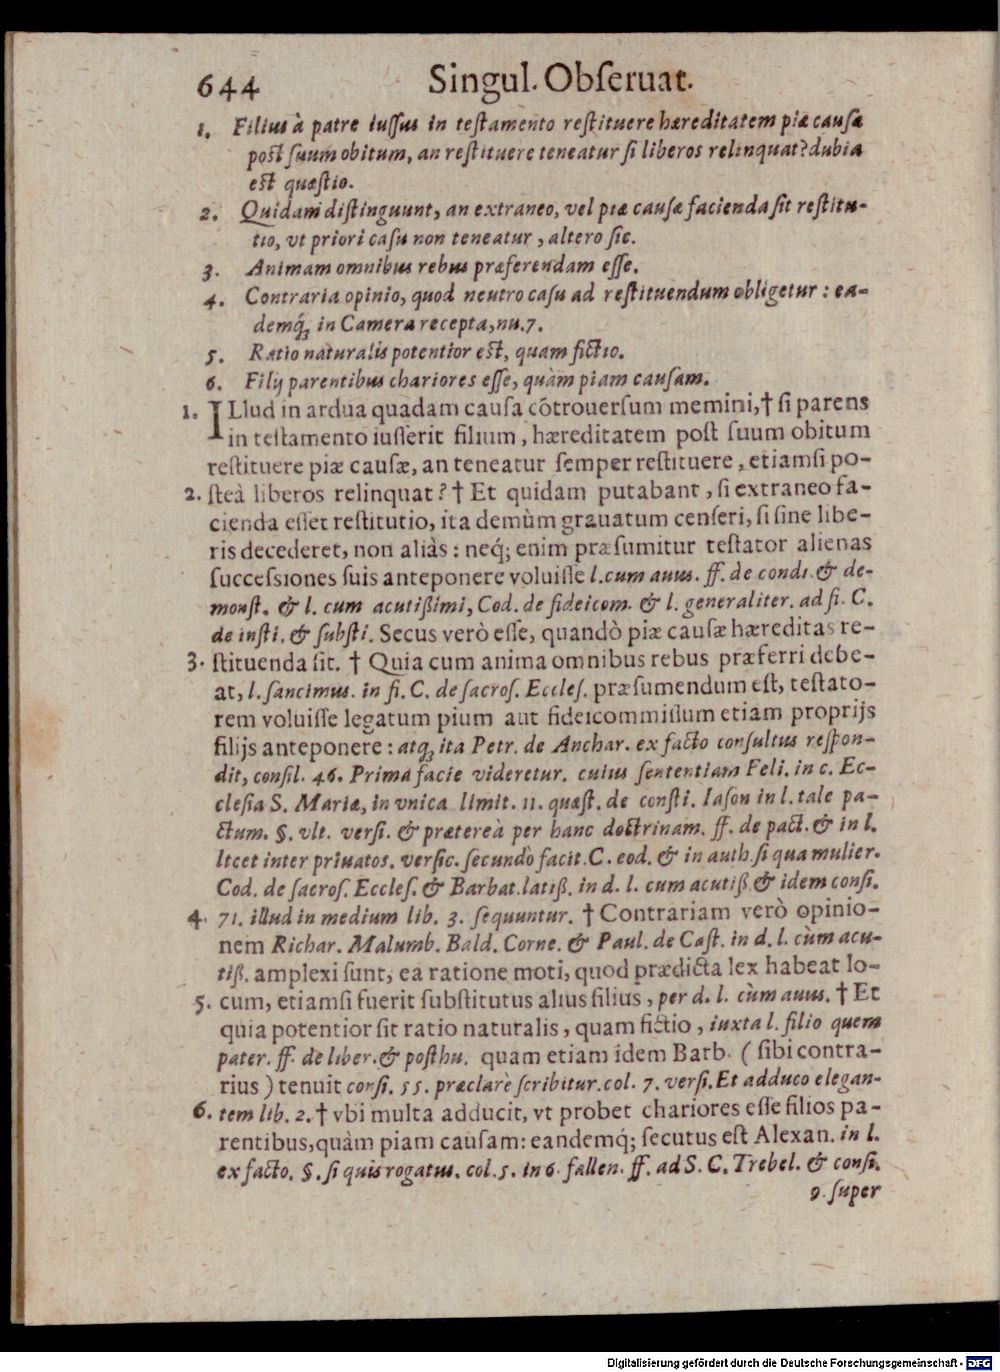 644 Singul. Obſeruat.
1. Filius à patre iuſſus in teſtamento reſtituere hæreditatem piæ cauſæ
poſt ſuum obitum, an reſtituere teneatur ſi liberos relinquat? dubia
eſt quæſtio.
2. Quidam diſtinguunt, an extraneo, vel piæ cauſæ facienda ſit reſtitu-
tio, vt priori caſu non teneatur, altero ſic.
3. Animam omnibus rebus præferendam eſſe.
4. Contraria opinio, quod neutro caſu ad reſtituendum obligetur: ea-
demq́ꝫ in Camera recepta, nu. 7.
5. Ratio naturalis potentior eſt, quam fictio.
6. Filij parentibus chariores eſſe, quàm piam cauſam.
1. ILlud in ardua quadam cauſa cõtrouerſum memini, † ſi parens
in teſtamento iuſſerit filium, hæreditatem poſt ſuum obitum
reſtituere piæ cauſæ, an teneatur ſemper reſtituere, etiamſi po-
2. ſteà liberos relinquat? † Et quidam putabant, ſi extraneo fa-
cienda eſſet reſtitutio, ita demùm grauatum cenſeri, ſi ſine libe-
ris decederet, non aliàs: neq́; enim præſumitur teſtator alienas
ſucceſsiones ſuis anteponere voluiſſe l. cum auus. ff. de condi. & de-
monſt. & l. cum acutißimi, Cod. de fideicom. & l. generaliter. ad fi. C.
de inſti. & ſubſti. Secus verò eſſe, quandò piæ cauſæ hæreditas re-
3. ſtituenda ſit. † Quia cum anima omnibus rebus præferri debe-
at, l. ſancimus. in fi. C. de ſacroſ. Eccleſ. præſumendum eſt, teſtato-
rem voluiſſe legatum pium aut fideicommiſſum etiam proprijs
filijs anteponere: atqꝫ ita Petr. de Anchar. ex facto conſultus reſpon-
dit, conſil. 46. Prima facie videretur. cuius ſententiam Feli. in c. Ec-
cleſia S. Mariæ, in vnica limit. 11. quæſt. de conſti. Iaſon in l. tale pa-
ctum. §. vlt. verſi. & prætereà per hanc doctrinam. ff. de pact. & in l.
licet inter priuatos. verſic. ſecundò facit. C. eod. & in auth. ſi qua mulier.
Cod. de ſacroſ. Eccleſ. & Barbat. latiß. in d. l. cum acutiß. & idem conſi.
4. 71. illud in medium lib. 3. ſequuntur. † Contrariam verò opinio-
nem Richar. Malumb. Bald. Corne. & Paul. de Caſt. in d. l. cùm acu-
tiß. amplexi ſunt, ea ratione moti, quod prædicta lex habeat lo-
5. cum, etiamſi fuerit ſubſtitutus alius filius, per d. l. cùm auus. † Et
quia potentior ſit ratio naturalis, quam fictio, iuxta l. filio quem
pater. ff. de liber. & poſthu. quam etiam idem Barb. (ſibi contra-
rius) tenuit conſi. 55. præclarè ſcribitur. col. 7. verſi. Et adduco elegan-
6. tem lib. 2. † vbi multa adducit, vt probet chariores eſſe filios pa-
rentibus, quàm piam cauſam: eandemq́; ſecutus eſt Alexan. in l.
ex facto. §. ſi quis rogatus. col. 5. in 6. fallen. ff. ad S. C. Trebel. & conſi.
9. ſuper
Digitalisierung gefördert durch die Deutsche Forschungsgemeinschaft - DFG